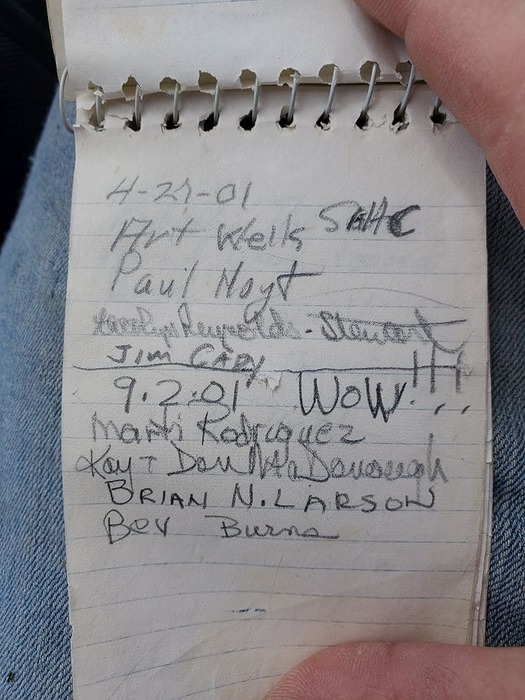 4-29-01
Art Wells SAHC
Paul Hoyt
Reynolds - Stewart
JIM CADY
9.2.01 WOW!!!
Marti Rodriguez
Kay + Dan McDonough
BRIAN N. LARSON
Bev Burns